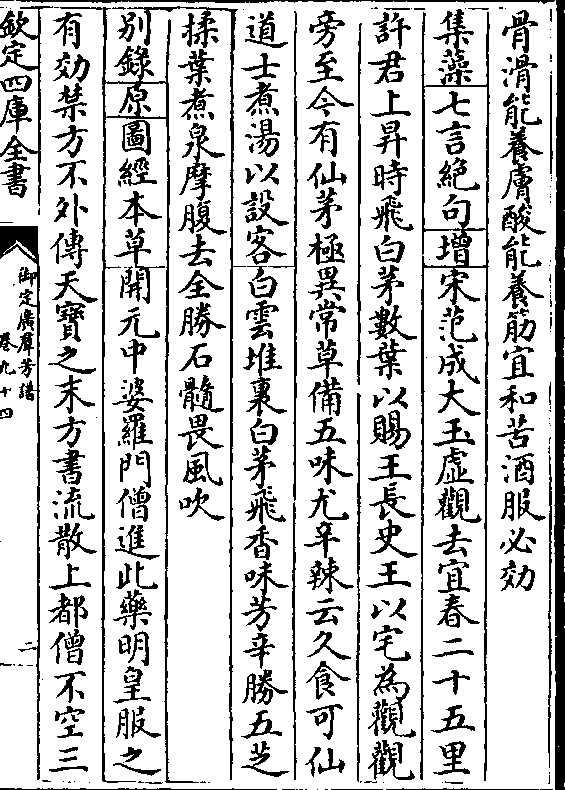 骨滑能養膚酸能養筋宜和苦酒服必効
集藻七言絶句增宋范成大玉虚觀去宜春二十五里
許君上昇時飛白茅數葉以賜王長史王以宅為觀觀
旁至今有仙茅極異常草備五味尤辛辣云久食可仙
道士煮湯以設客白雲堆裏白茅飛香味芳辛勝五芝
揉葉煮泉摩腹去全勝石髓畏風吹
别錄原圖經本草開元中婆羅門僧進此藥明皇服之
有効禁方不外傳天寶之末方書流散上都僧不空三
欽定四庫全書
御定廣羣芳譜
卷九十四
二